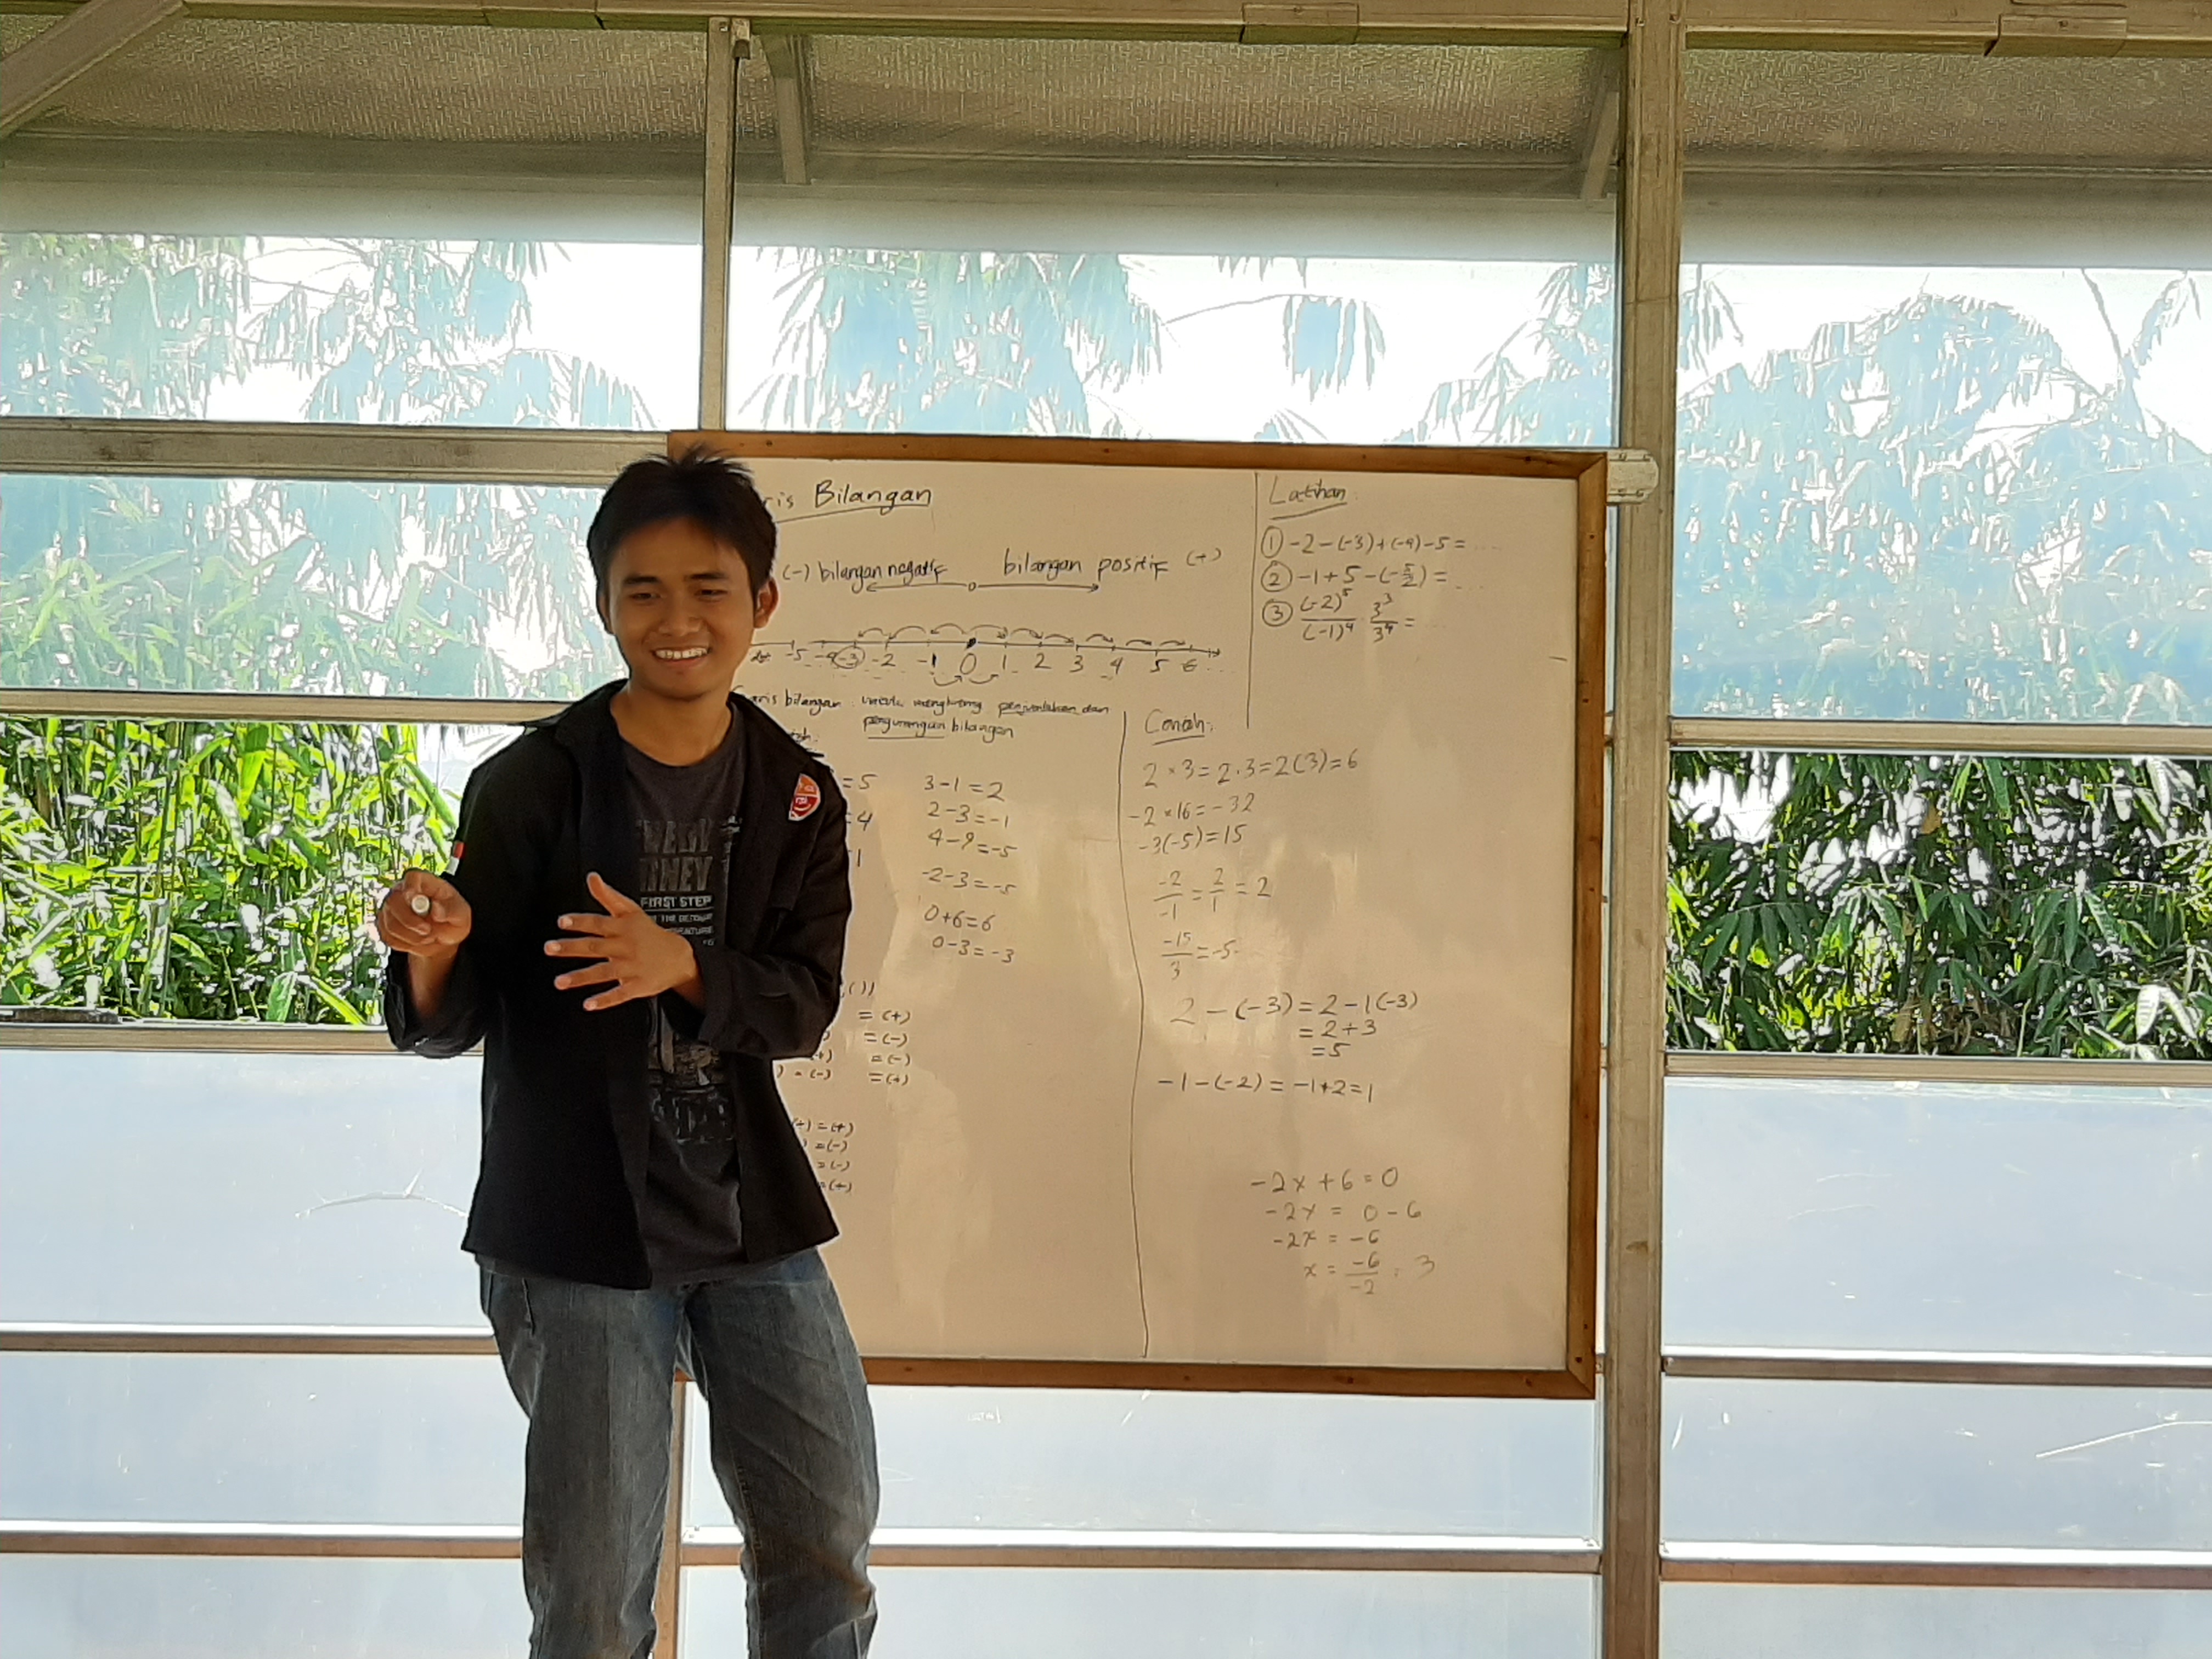 ris Bilangan
(-) bilangan negatif bilangan positif (+)
-5 -4 -3 -2 -1 0 1 2 3 4 5 6 ....
aris bilangan : untuk menghitung penjumlahan dan
pengurangan bilangan
toh:
=5
=4
=1
3-1=2
2-3=-1
4-9=-5
-2-3=-5
0+6=6
0-3=-3
=(+)
=(-)
(+) =(-)
) : (-) =(+)
(+)=(+)
)=(-)
=(-)
=(+)
Latihan:
① -2-(-3)+(-4)-5= ....
② -1+5-(-5/2)= ....
③ (-2)⁵/(-1)⁴ · 3³/3⁴ = ....
Contoh:
2×3=2·3=2(3)=6
-2×16=-32
-3(-5)=15
-2/-1 = 2/1 = 2
-15/3 = -5
2-(-3)=2-1(-3)
=2+3
=5
-1-(-2)=-1+2=1
-2x+6=0
-2x = 0-6
-2x = -6
x = -6/-2 = 3
FIRST STEP